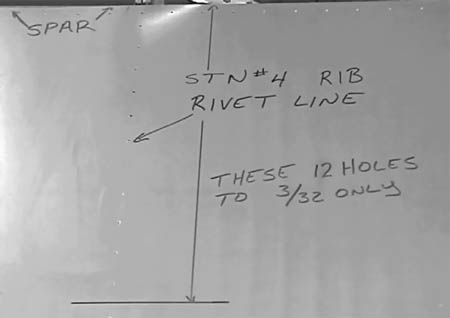 SPAR
STN #4 RIB
RIVET LINE
THESE 12 HOLES
TO 3/32 ONLY